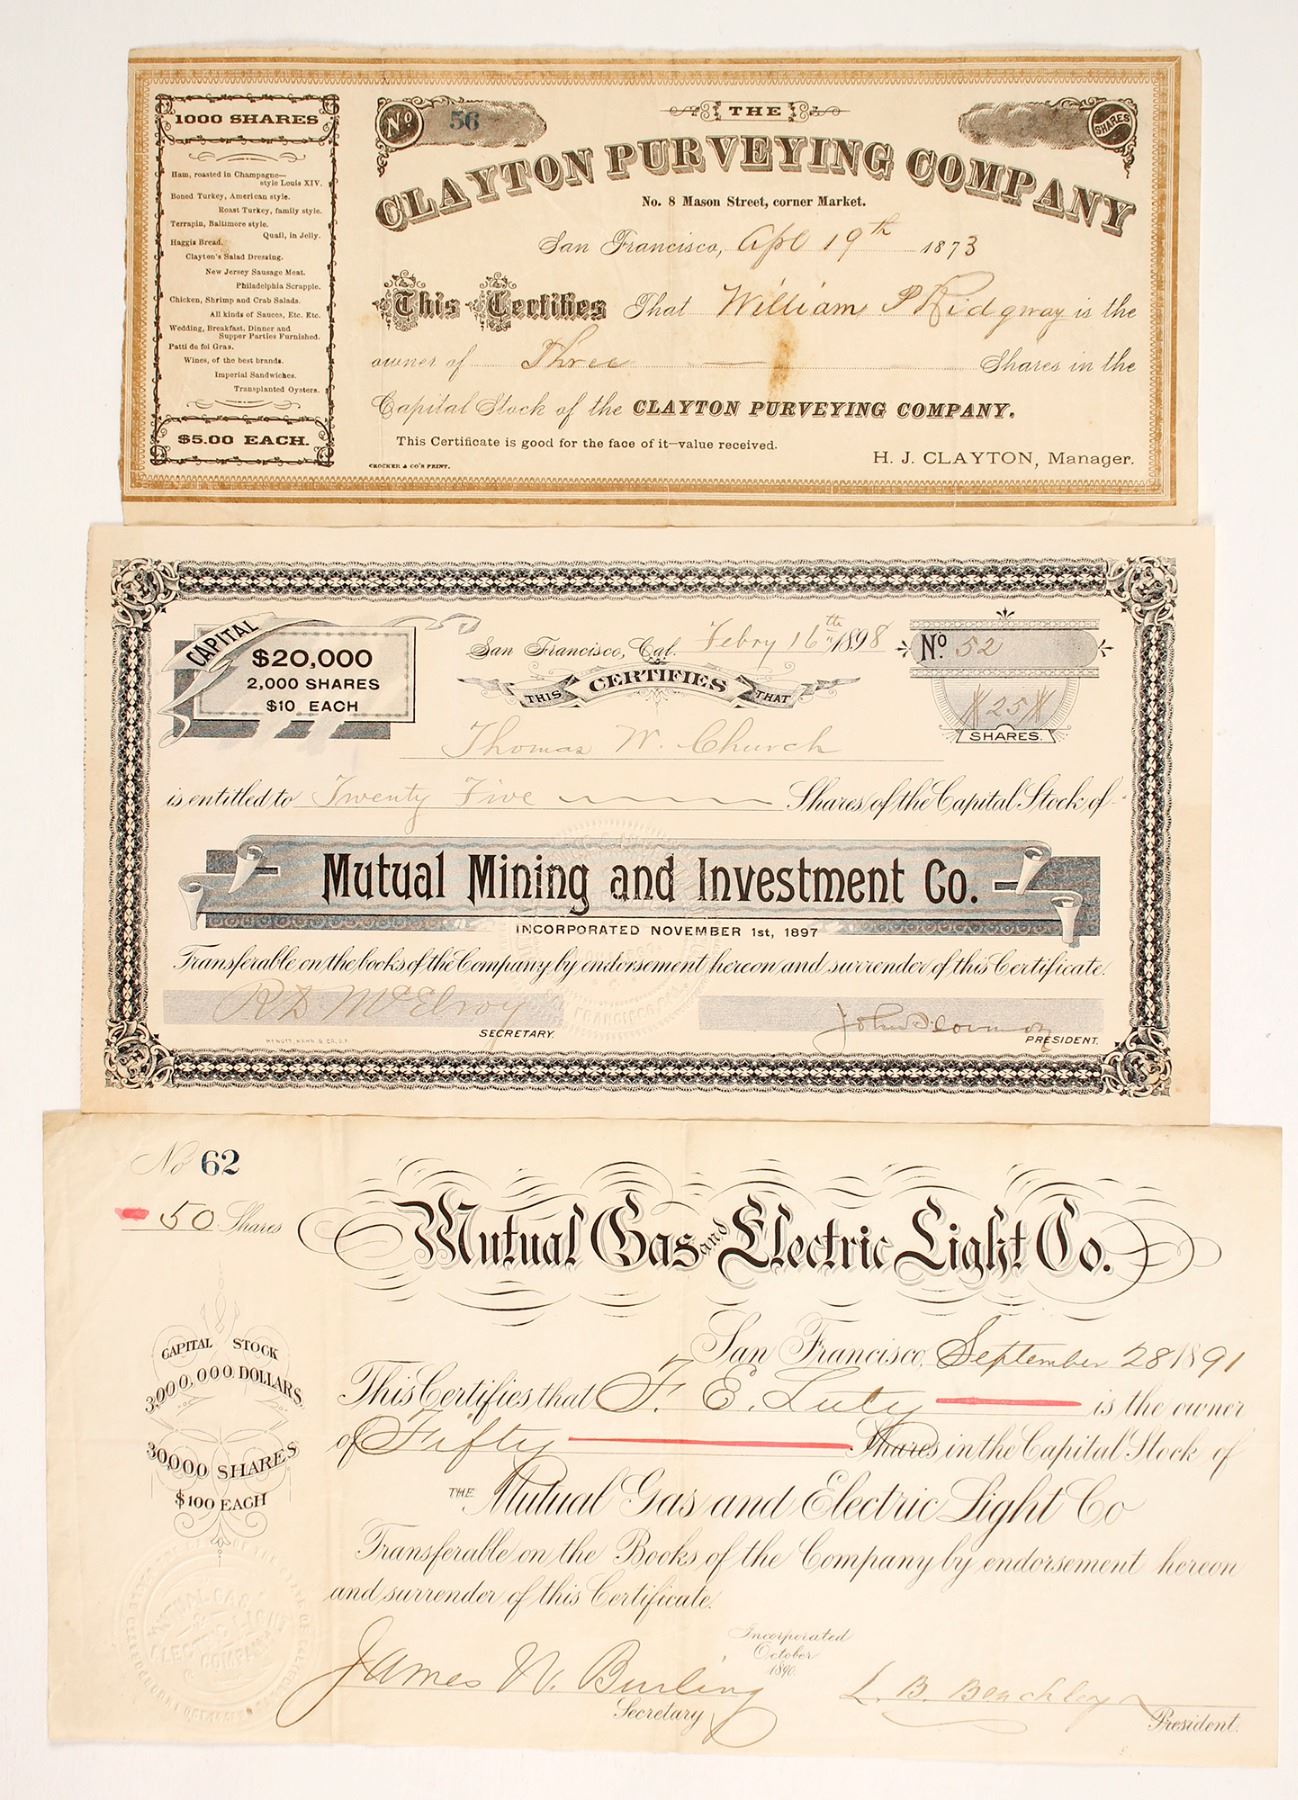 1000 SHARES
Ham, roasted in Champagne—
style Louis XIV.
Boned Turkey, American style.
Roast Turkey, family style.
Terrapin, Baltimore style.
Quail, in Jelly.
Haggis Bread.
Clayton's Salad Dressing.
New Jersey Sausage Meat.
Philadelphia Scrapple.
Chicken, Shrimp and Crab Salads.
All kinds of Sauces, Etc. Etc.
Wedding, Breakfast, Dinner and
Supper Parties Furnished.
Patti de foi Gras.
Wines, of the best brands.
Imperial Sandwiches.
Transplanted Oysters.
$5.00 EACH.
No 56
THE
SHARES
CLAYTON PURVEYING COMPANY
No. 8 Mason Street, corner Market.
San Francisco, Apl 19th 1873
This Certifies That William P Ridgway is the
owner of Three Shares in the
Capital Stock of the CLAYTON PURVEYING COMPANY.
This Certificate is good for the face of it—value received.
H. J. CLAYTON, Manager.
CROCKER & CO'S PRINT.
CAPITAL
$20,000
2,000 SHARES
$10 EACH
San Francisco, Cal. Febry 16th 1898
No 52
THIS CERTIFIES THAT
25
SHARES.
Thomas W. Church
is entitled to Twenty Five Shares of the Capital Stock of
Mutual Mining and Investment Co.
INCORPORATED NOVEMBER 1st, 1897
Transferable on the books of the Company by endorsement hereon and surrender of this Certificate.
R D McElroy
SECRETARY.
PRESIDENT.
No 62
50 Shares
Mutual Gas and Electric Light Co.
CAPITAL STOCK
3,000,000 DOLLARS
30,000 SHARES
$100 EACH
San Francisco, September 28 1891
This Certifies that F. E. Luty is the owner
of Fifty Shares in the Capital Stock of
THE Mutual Gas and Electric Light Co
Transferable on the Books of the Company by endorsement hereon
and surrender of this Certificate.
Incorporated
October
1890.
James N. Burling
Secretary
L. B. Beachley
President.